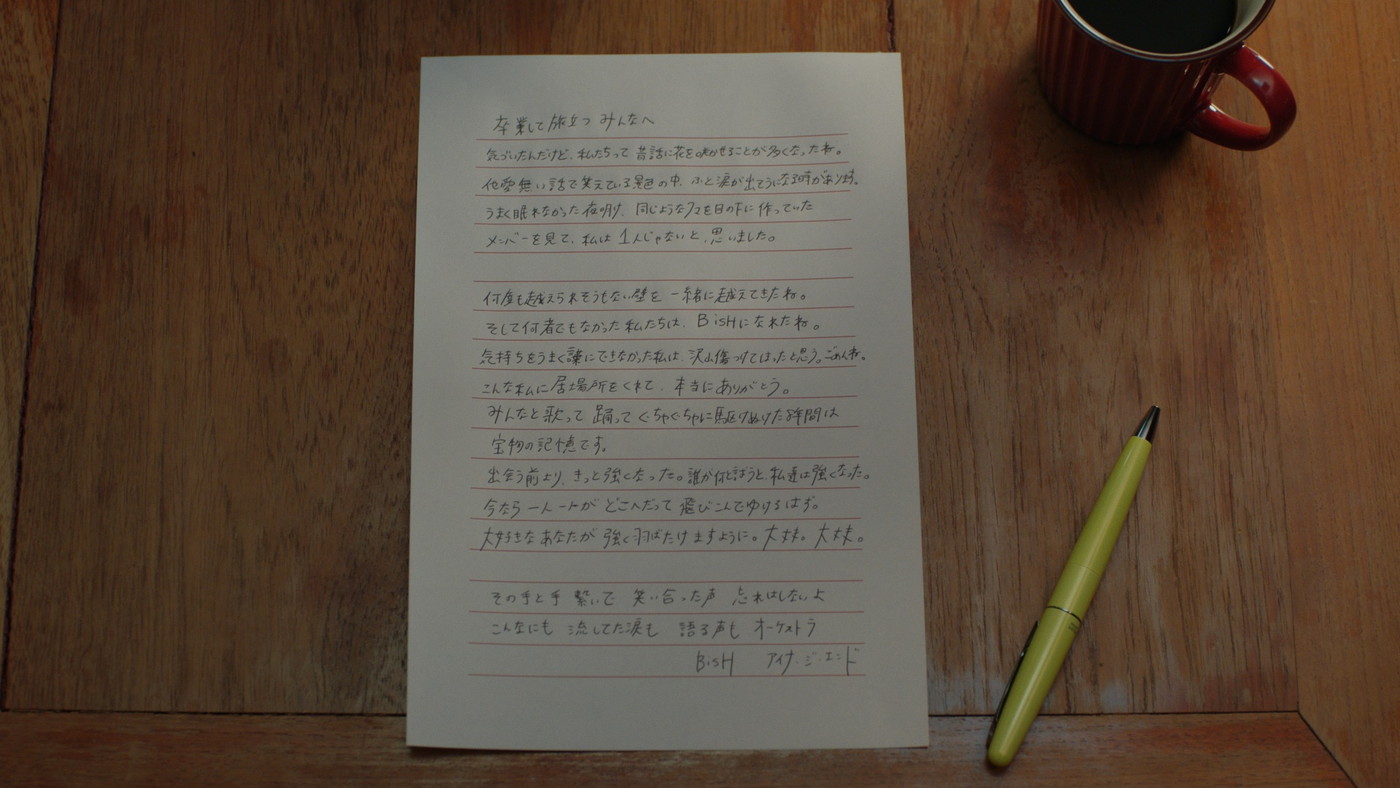 卒業して旅立つ みんなへ
気づいたんだけど、私たちって 昔話に花を咲かせることが多くなったね。
他愛無い話で笑えている景色の中、ふと涙が出そうになる時があります。
うまく眠れなかった夜明け、同じようなクマを目の下に作っていた
メンバーを見て、私は1人じゃないと、思いました。
何度も越えられそうもない壁を 一緒に越えてきたね。
そして何者でもなかった私たちは、BiSHになれたね。
気持ちをうまく言葉にできなかった私は、沢山傷つけてしまったと思う。ごめんね。
こんな私に居場所をくれて、本当にありがとう。
みんなと歌って 踊って ぐちゃぐちゃに駆けぬけた8年間は
宝物の記憶です。
出会う前より、きっと強くなった。誰が何と言おうと、私達は強くなった。
今なら 一人一人が どこへだって 飛びこんでゆけるはず。
大好きな あなたが 強く羽ばたけますように。大丈夫。大丈夫。
その手と手 繋いで 笑い合った声 忘れはしないよ
こんなにも 流してた涙も 語る声も オーケストラ
BiSH アイナ・ジ・エンド